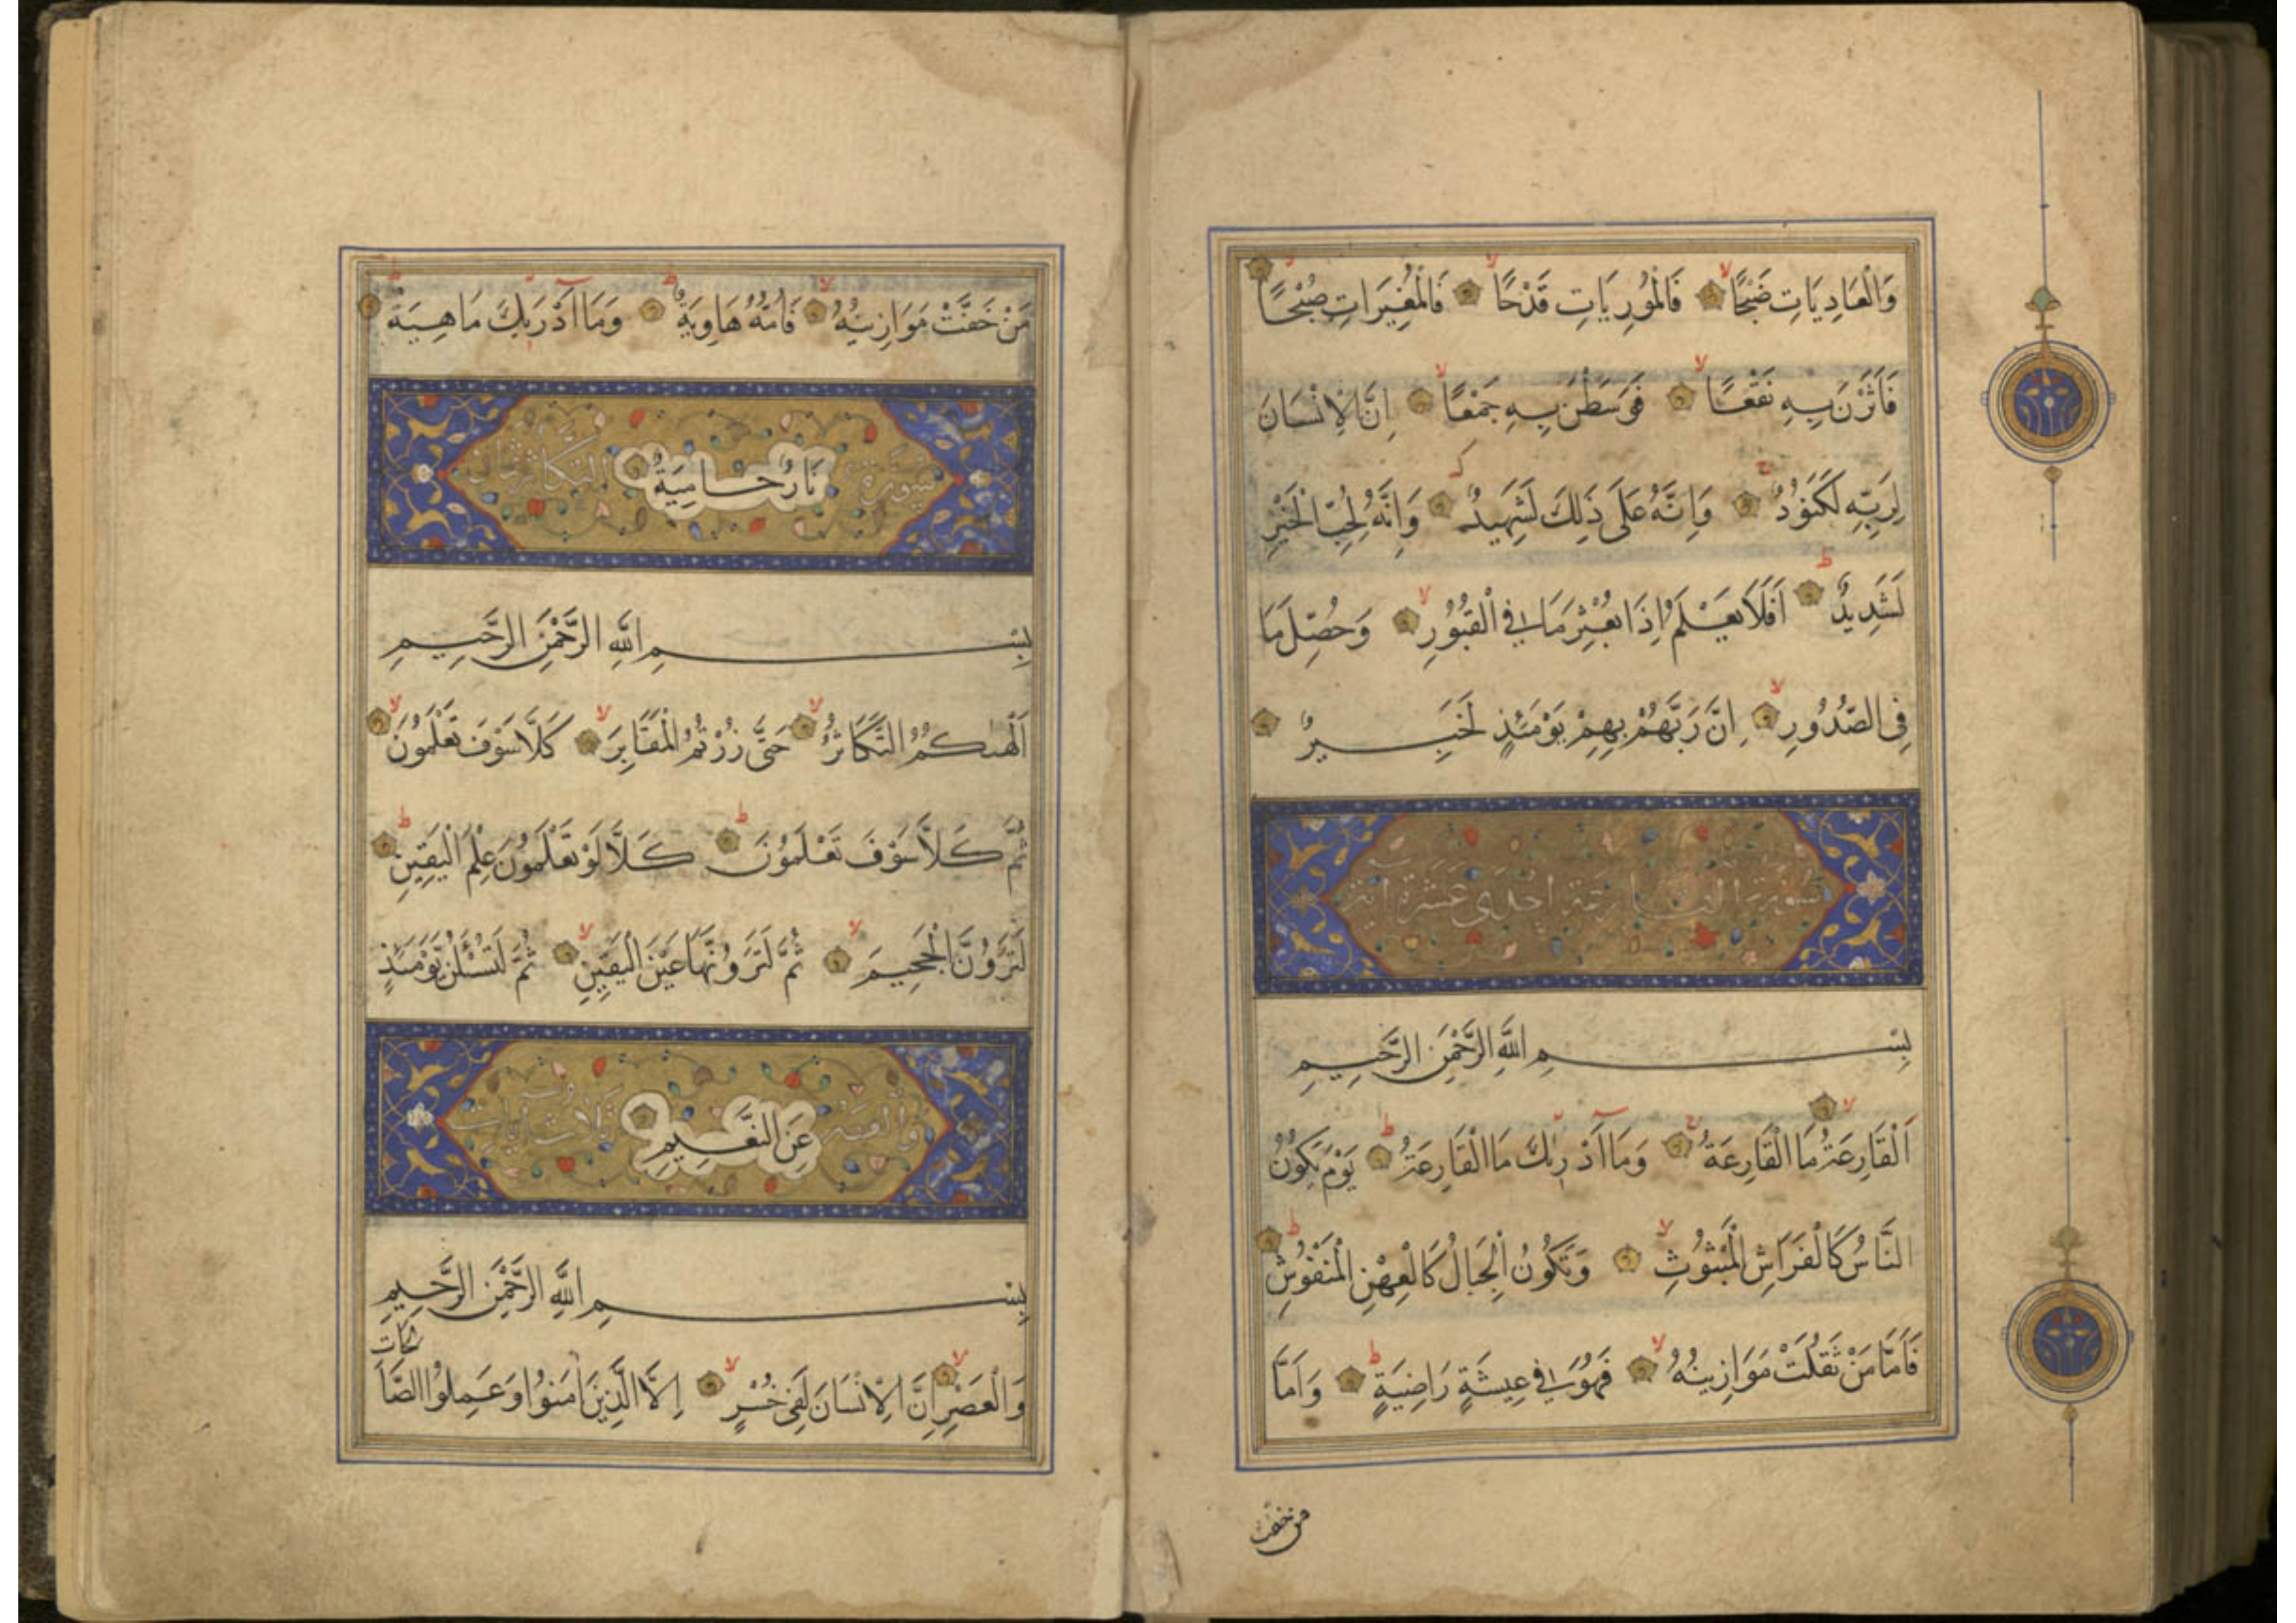 وَالْعَادِيَاتِ ضَبْحًا فَالْمُورِيَاتِ قَدْحًا فَالْمُغِيرَاتِ صُبْحًا
فَاَثَرْنَ بِهِ نَقْعًا فَوَسَطْنَ بِهِ جَمْعًا اِنَّ الْاِنْسَانَ
لِرَبِّهِ لَكَنُودٌ وَاِنَّهُ عَلَى ذَلِكَ لَشَهِيدٌ وَاِنَّهُ لِحُبِّ الْخَيْرِ
لَشَدِيدٌ اَفَلَا يَعْلَمُ اِذَا بُعْثِرَ مَا فِي الْقُبُورِ وَحُصِّلَ مَا
فِي الصُّدُورِ اِنَّ رَبَّهُمْ بِهِمْ يَوْمَئِذٍ لَخَبِيرٌ
سورة القارعة احدى عشرة اية
بِسْمِ اللَّهِ الرَّحْمَنِ الرَّحِيمِ
اَلْقَارِعَةُ مَا الْقَارِعَةُ وَمَا اَدْرٰيكَ مَا الْقَارِعَةُ يَوْمَ يَكُونُ
النَّاسُ كَالْفَرَاشِ الْمَبْثُوثِ وَتَكُونُ الْجِبَالُ كَالْعِهْنِ الْمَنْفُوشِ
فَاَمَّا مَنْ ثَقُلَتْ مَوَازِينُهُ فَهُوَ فِي عِيشَةٍ رَاضِيَةٍ وَاَمَّا
من خفت
مَنْ خَفَّتْ مَوَازِينُهُ فَاُمُّهُ هَاوِيَةٌ وَمَا اَدْرَيكَ مَاهِيَهْ
سورة نَارٌ حَامِيَةٌ التكاثر ثمان
بِسْمِ اللَّهِ الرَّحْمَنِ الرَّحِيمِ
اَلْهٰىكُمُ التَّكَاثُرُ حَتَّى زُرْتُمُ الْمَقَابِرَ كَلَّا سَوْفَ تَعْلَمُونَ
ثُمَّ كَلَّا سَوْفَ تَعْلَمُونَ كَلَّا لَوْ تَعْلَمُونَ عِلْمَ الْيَقِينِ
لَتَرَوُنَّ الْجَحِيمَ ثُمَّ لَتَرَوُنَّهَا عَيْنَ الْيَقِينِ ثُمَّ لَتُسْئَلُنَّ يَوْمَئِذٍ
والعصر عَنِ النَّعِيمِ ثلاث ايات
بِسْمِ اللَّهِ الرَّحْمَنِ الرَّحِيمِ
وَالْعَصْرِ اِنَّ الْاِنْسَانَ لَفِي خُسْرٍ اِلَّا الَّذِينَ اٰمَنُوا وَعَمِلُوا الصَّا
لحات